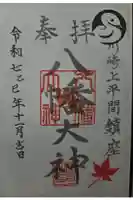 川崎上平間鎮座
奉拝
八幡大神
令和七乙巳年十一月吉日